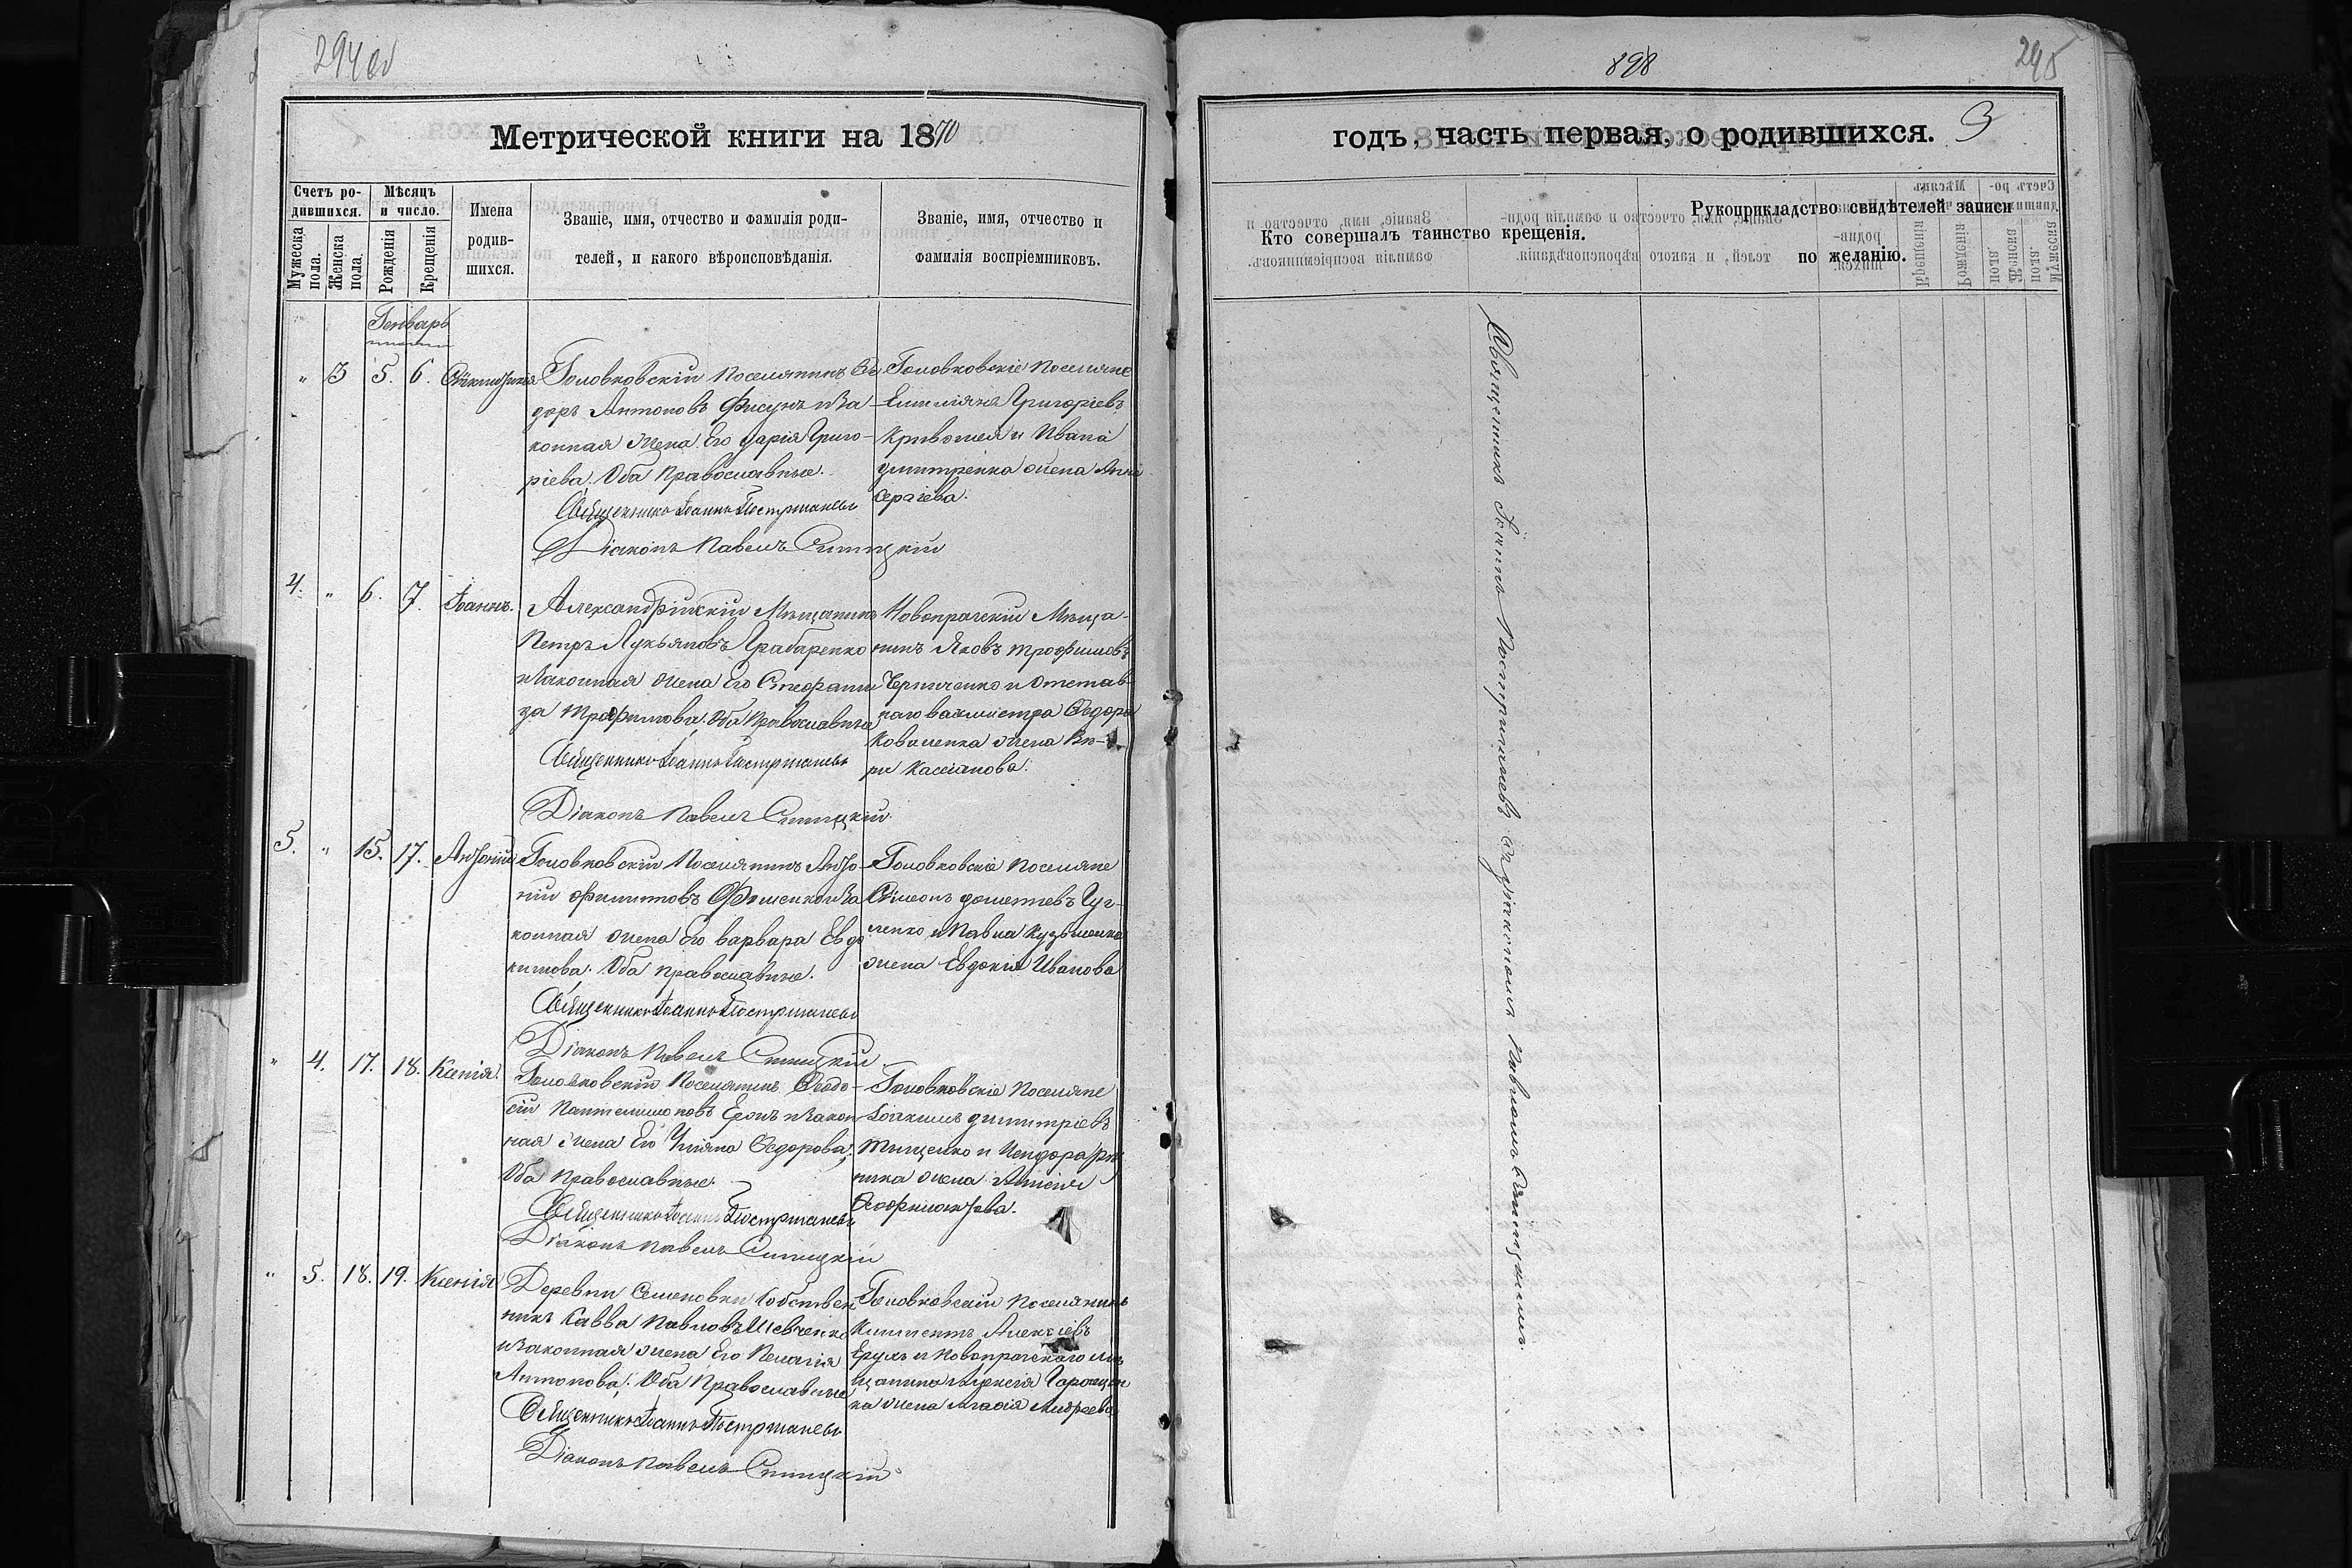 294 об
Метрической книги на 1870
Счетъ ро-
дившихся.
Мѣсяцъ
и число.
Мужеска
пола.
Женска
пола.
Рожденія
Крещенія
Имена
родив-
шихся.
Званіе, имя, отчество и фамилія роди-
телей, и какого вѣроисповѣданія.
Званіе, имя, отчество и
фамилія воспріемниковъ.
Генварь
" 3 5. 6.
Головковскій Поселянинъ Ѳе
доръ Антоновъ Фисунъ и За
конная жена Его Дарія Григо-
ріева. Оба Православные.
Священникъ Іоаннъ Постригачевъ
Діаконъ Павелъ Спицкій
Головковскіе Поселяне
Емиліянъ Григоріевъ
Кривошея и Ивана
Димтренка жена Анна
Сергіева.
4. " 6. 7. Іоаннъ.
Александрійскій Мѣщанинъ
Петръ Лукьяновъ Грабаренко
и Законная жена Его Стефани
да Трофимова. Оба Православные
Священникъ Іоаннъ Постригачевъ
Діаконъ Павелъ Спицкій.
Новопражскій Мѣща-
нинъ Яковъ Трофимовъ
Черниченко и Отстав-
наго вахмистра Ѳедора
Коваленка жена Вѣ-
ра Кассіанова.
5. " 15. 17. Антоній
Головковскій Поселянинъ Анто-
ній Филипповъ Фоменко и За
конная жена Его Варвара Евдо
кимова. Оба Православные.
Священникъ Іоаннъ Постригачевъ
Діаконъ Павелъ Спицкій
Головковскіе Поселяне
Симеонъ Дометіевъ
и Павла Кузьменка
жена Евдокія Иванова
" 4. 17. 18. Ксенія.
Головковскій Поселянинъ Ѳеодо-
сій Пантелимоновъ и Закон
ная жена Его Уліяна Ѳедорова.
Оба Православные.
Священникъ Іоаннъ Постригачевъ
Діаконъ Павелъ Спицкій
Головковскіе Поселяне
Іоакимъ Димитріевъ
Тищенко и
жена
Ѳеофилактова.
" 5. 18. 19. Ксенія
Деревни Семеновки Собствен
никъ Савва Павловъ Шевченко
и Законная жена Его Пелагія
Антонова. Оба Православные
Священникъ Іоаннъ Постригачевъ
Діаконъ Павелъ Спицкій
Головковскій Поселянинъ
Климентъ Алексіевъ
и Новопражскаго мѣ
щанина
ка жена Агафія Андреева
898
295
годъ, часть первая, о родившихся. 3
Кто совершалъ таинство крещенія.
Рукоприкладство свидѣтелей записи
по желанію.
Священникъ Іоаннъ Постригачевъ съ Діакономъ Павломъ Спицкимъ.